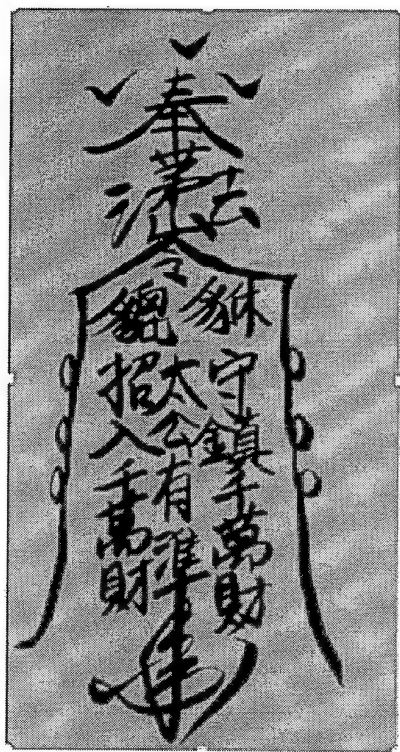 奉
茅山法
令
貅貔
守鎮千萬財
太公有準
招入千萬財